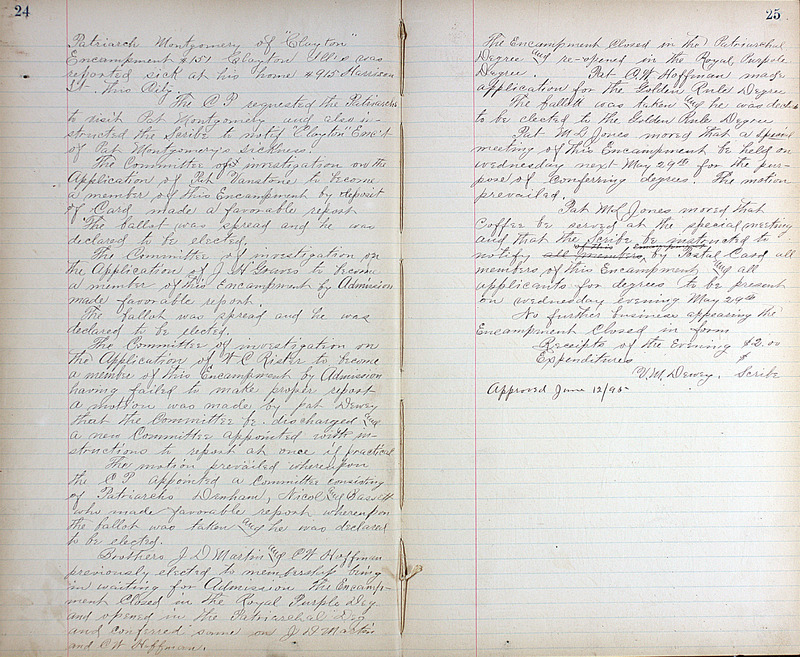 24
Patriarch Montgomery of "Clayton"
Encampment #151 Clayton Ills was
reported sick at his home #915 Harrison
St. this City.
The C P requested the Patriarchs
to visit Pat Montgomery and also in-
structed the Scribe to notify "Clayton" Encpt
of Pat Montgomery's sickness.
The Committee of investigation on the
Application of Pat Vanstone to become
a member of this Encampment by deposit
of Card made a favorable report
The ballot was spread and he was
declared to be elected.
The Committee of investigation on
the Application of J. H Graves to become
a member of this Encampment by Admission
made favorable report.
The ballot was spread and he was
declared to be elected.
The Committee of investigation on
the Application of W C Rister to become
a member of this Encampment by Admission
having failed to make proper report
a motion was made by pat Dewey
that the Committee be discharged and
a new Committee appointed with in-
structions to report at once if practical
The motion prevailed whereupon
the C P appointed a Committee consisting
of Patriarchs Denham, Nicol and Bassett
who made favorable report whereupon
the ballot was taken and he was declared
to be elected.
Brothers J. D Martin and C W Hoffman
previously elected to membership being
in waiting for Admission the Encamp-
ment Closed in the Royal Purple Deg
and opened in the Patriarchal Deg
and conferred same on J D Martin
and C W Hoffman.
25
The Encampment Closed in the Patriarchal
Degree and re-opened in the Royal Purple
Degree. Pat C W Hoffman made
application for the Golden Rule Degree
The ballott was taken and he was declared
to be elected to the Golden Rule Degree
Pat M L Jones moved that a special
meeting of this Encampment be held on
wednesday next May 29th for the pur-
pose of Conferring degrees. The motion
prevailed.
Pat M L Jones moved that
Coffee be served at the special meeting
and that the Scribe be instructed to
notify all members, by Postal Card all
members of this Encampment and all
applicants for degrees to be present
on wednesday evening May 29th
No further business appearing the
Encampment Closed in form
Receipts of the Evening $2.00
Expenditures $
V. M. Dewey. Scribe
Approved June 12/95-